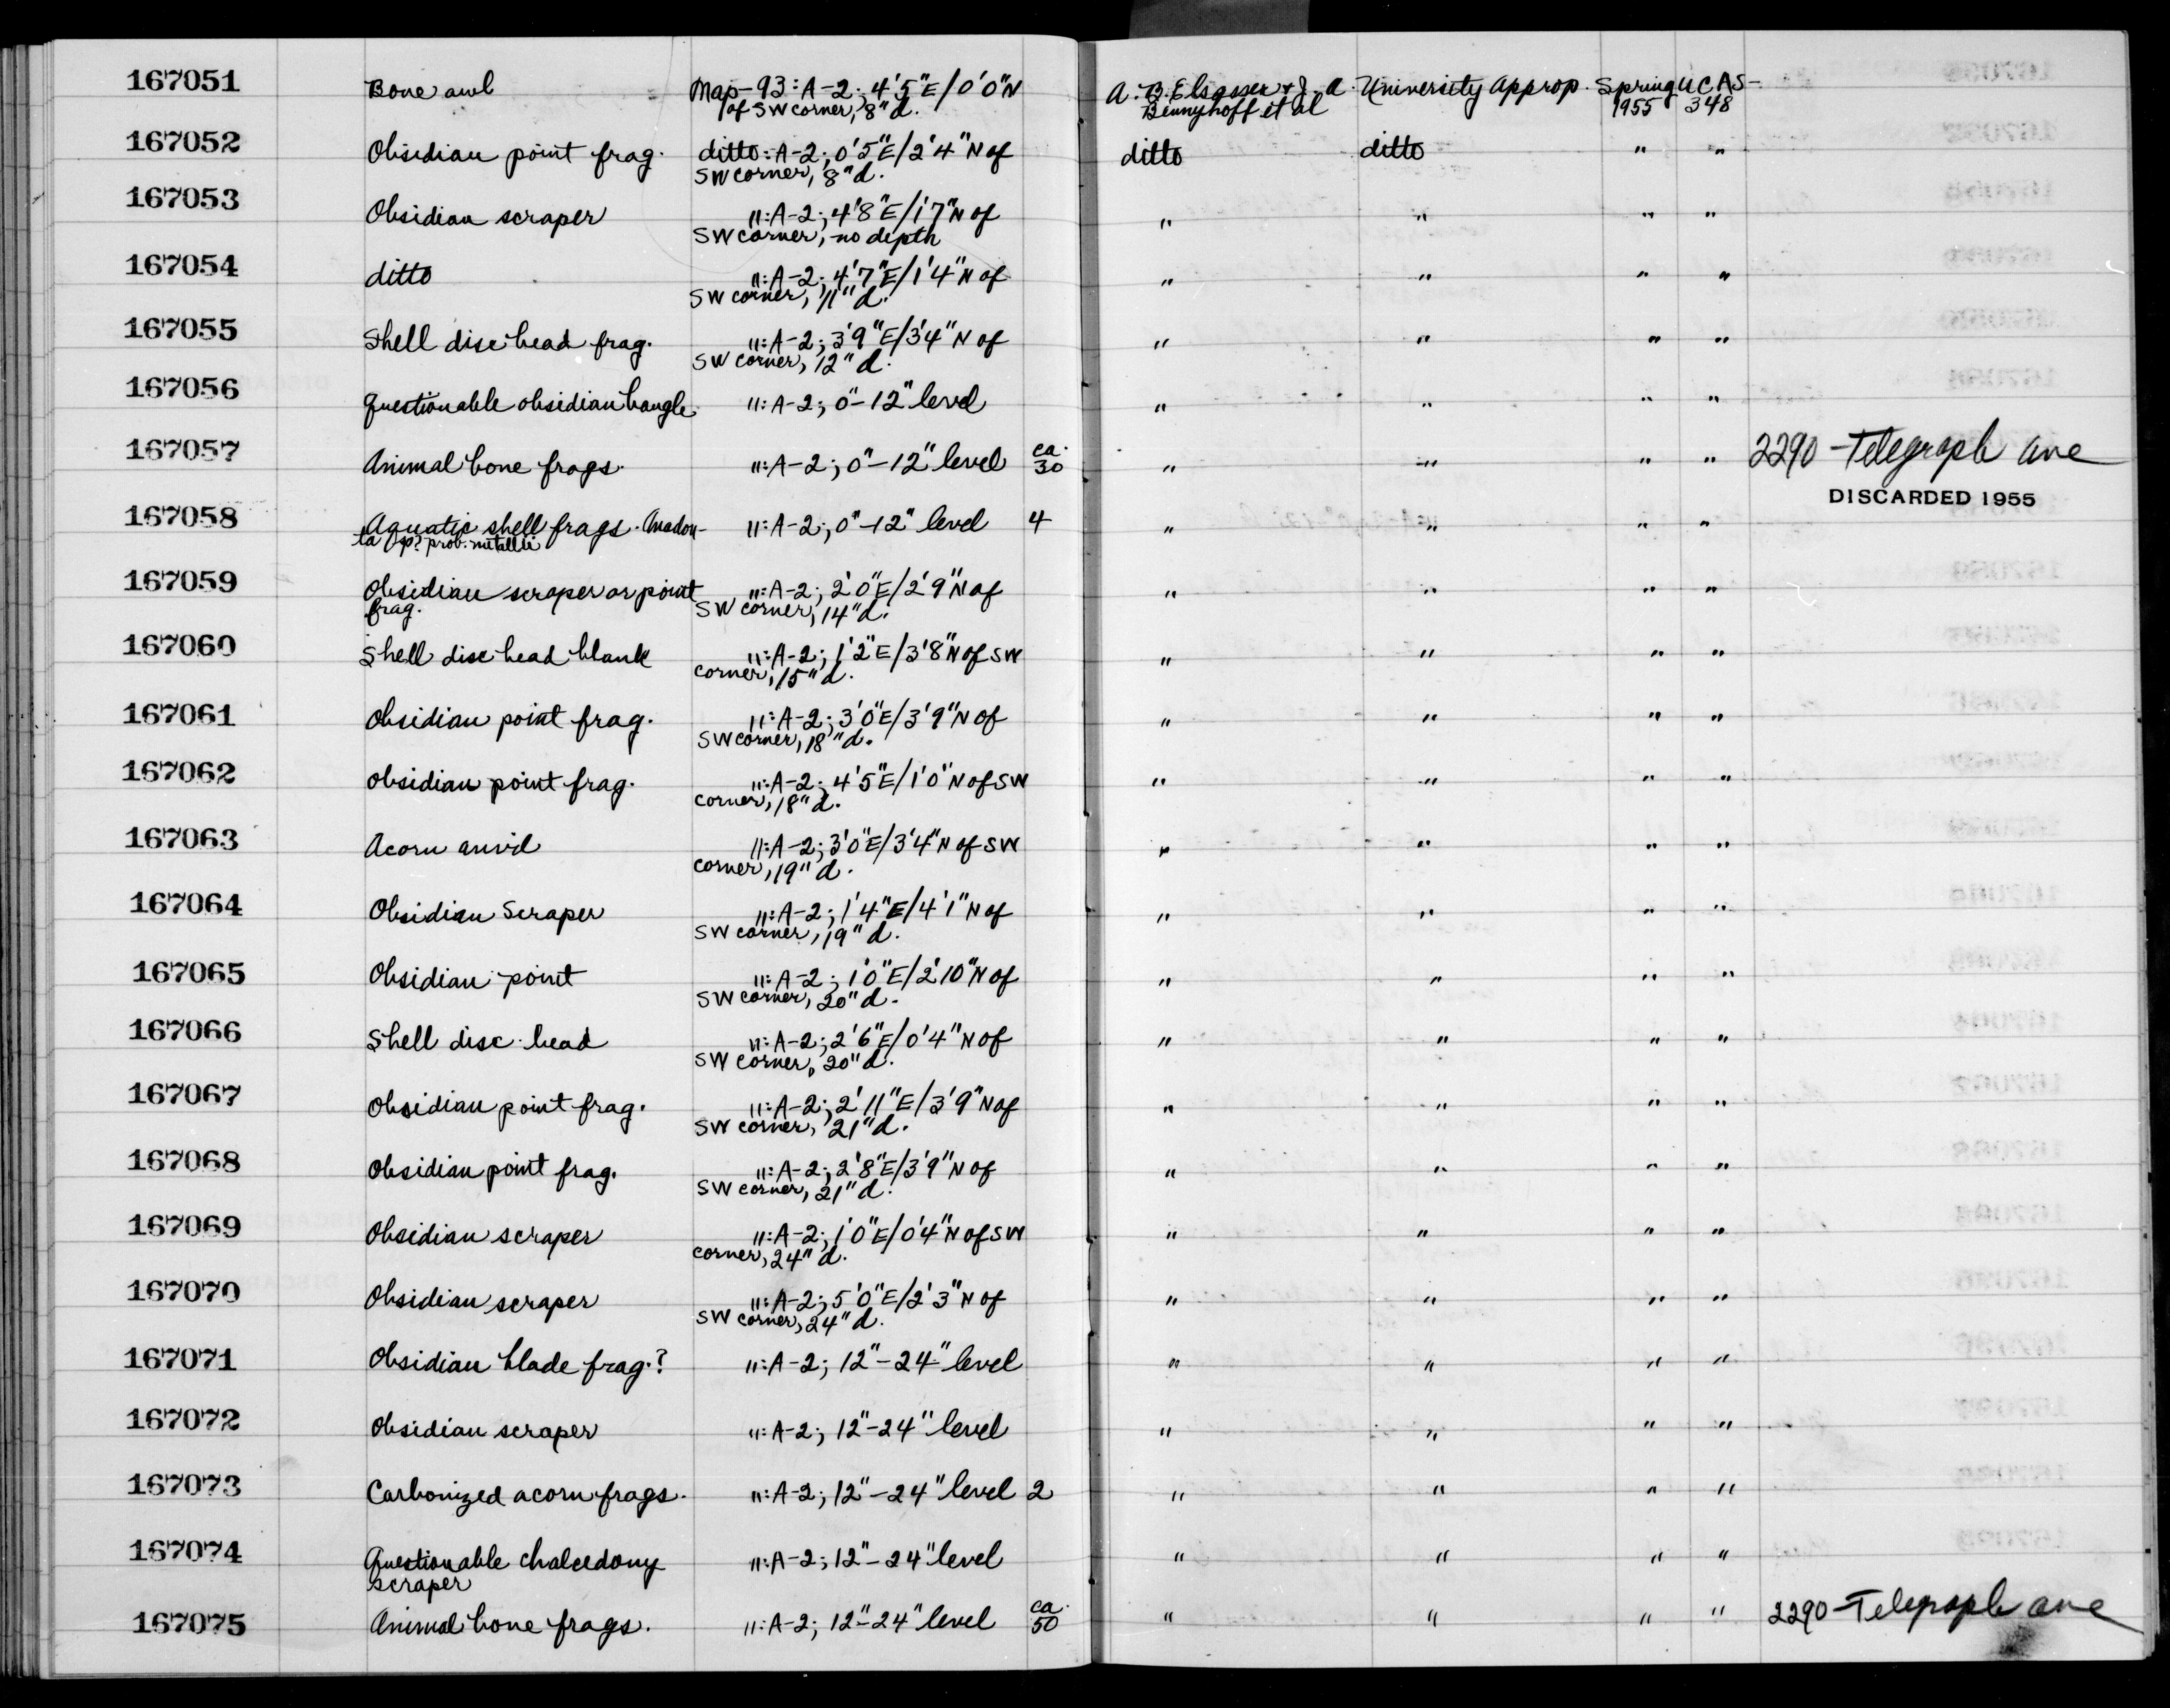 167051 Bone awl Map-93:A-2; 4'5"E/0'0"N A. B. Elsasser & J. A. University Approp. Spring UCAS-
of SW corner, 8" d. Bennyhoff et al 1955 348
167052 Obsidian point frag. ditto:A-2; 0'5"E/2'4"N of ditto ditto " "
SW corner, 8" d.
167053 Obsidian scraper ":A-2; 4'8"E/1'7"N of " " " "
SW corner, no depth
167054 ditto ":A-2; 4'7"E/1'4"N of " " " "
SW corner, 11" d.
167055 Shell disc bead frag. ":A-2; 3'9"E/3'4"N of " " " "
SW corner, 12" d.
167056 Questionable obsidian bangle ":A-2; 0"-12" level " " " "
167057 Animal bone frags. ":A-2; 0"-12" level ca. 30 " " " " 2290-Telegraph Ave
DISCARDED 1955
167058 Aquatic shell frags. Anadon- ":A-2; 0"-12" level 4 " " " "
ta sp? prob.
167059 Obsidian scraper or point ":A-2; 2'0"E/2'9"N of " " " "
frag. SW corner, 14" d.
167060 Shell disc bead blank ":A-2; 1'2"E/3'8"N of SW " " " "
corner, 15" d.
167061 Obsidian point frag. ":A-2; 3'0"E/3'9"N of " " " "
SW corner, 18" d.
167062 Obsidian point frag. ":A-2; 4'5"E/1'0"N of SW " " " "
corner, 18" d.
167063 Acorn anvil ":A-2; 3'0"E/3'4"N of SW " " " "
corner, 19" d.
167064 Obsidian Scraper ":A-2; 1'4"E/4'1"N of " " " "
SW corner, 19" d.
167065 Obsidian point ":A-2; 1'0"E/2'10"N of " " " "
SW corner, 20" d.
167066 Shell disc bead ":A-2; 2'6"E/0'4"N of " " " "
SW corner, 20" d.
167067 Obsidian point frag. ":A-2; 2'11"E/3'9"N of " " " "
SW corner, 21" d.
167068 Obsidian point frag. ":A-2; 2'8"E/3'9"N of " " " "
SW corner, 21" d.
167069 Obsidian scraper ":A-2; 1'0"E/0'4"N of SW " " " "
corner, 24" d.
167070 Obsidian scraper ":A-2; 5'0"E/2'3"N of " " " "
SW corner, 24" d.
167071 Obsidian blade frag.? ":A-2; 12"-24" level " " " "
167072 Obsidian scraper ":A-2; 12"-24" level " " " "
167073 Carbonized acorn frags. ":A-2; 12"-24" level 2 " " " "
167074 Questionable chalcedony ":A-2; 12"-24" level " " " "
scraper
167075 Animal bone frags. ":A-2; 12"-24" level ca. 50 " " " " 2290-Telegraph ave